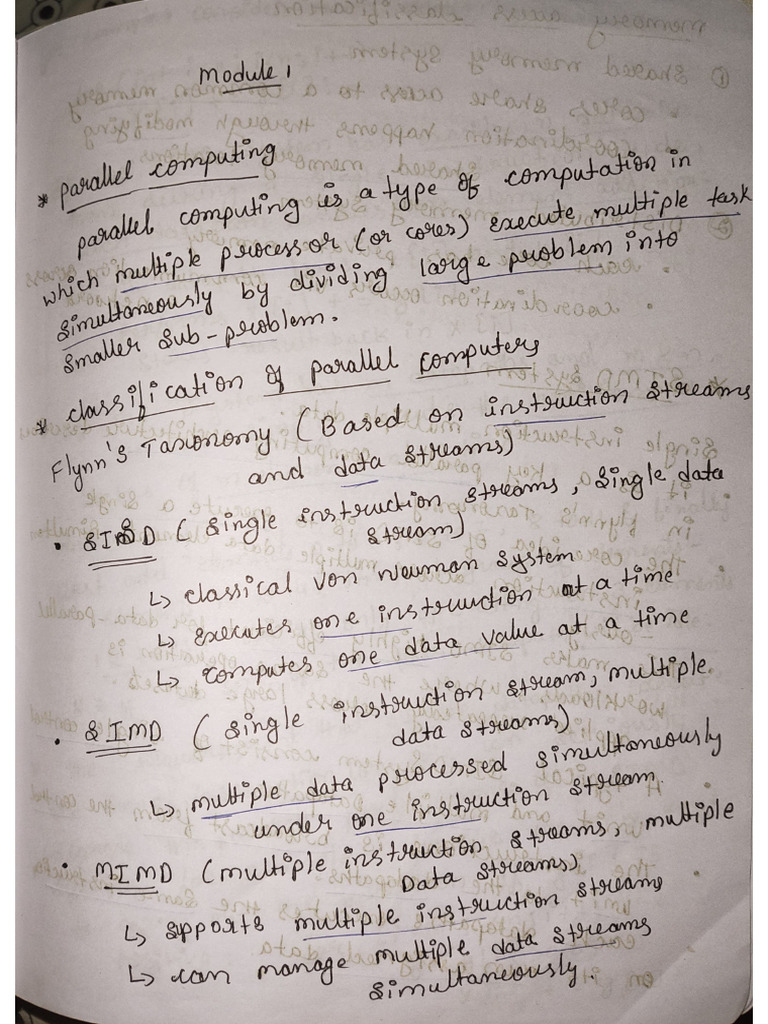 Module 1
* parallel computing
parallel computing is a type of computation in
which multiple processor (or cores) execute multiple task
simultaneously by dividing large problem into
smaller sub-problem.
* classification of parallel computers
Flynn's Taxonomy (Based on instruction streams
and data streams)
• SISD (single instruction streams, single data
stream)
↳ classical von neuman system
↳ executes one instruction at a time
↳ computes one data value at a time
• SIMD (single instruction stream, multiple
data streams)
↳ multiple data processed simultaneously
under one instruction stream
• MIMD (multiple instruction streams, multiple
Data streams)
↳ supports multiple instruction streams
↳ can manage multiple data streams
simultaneously.